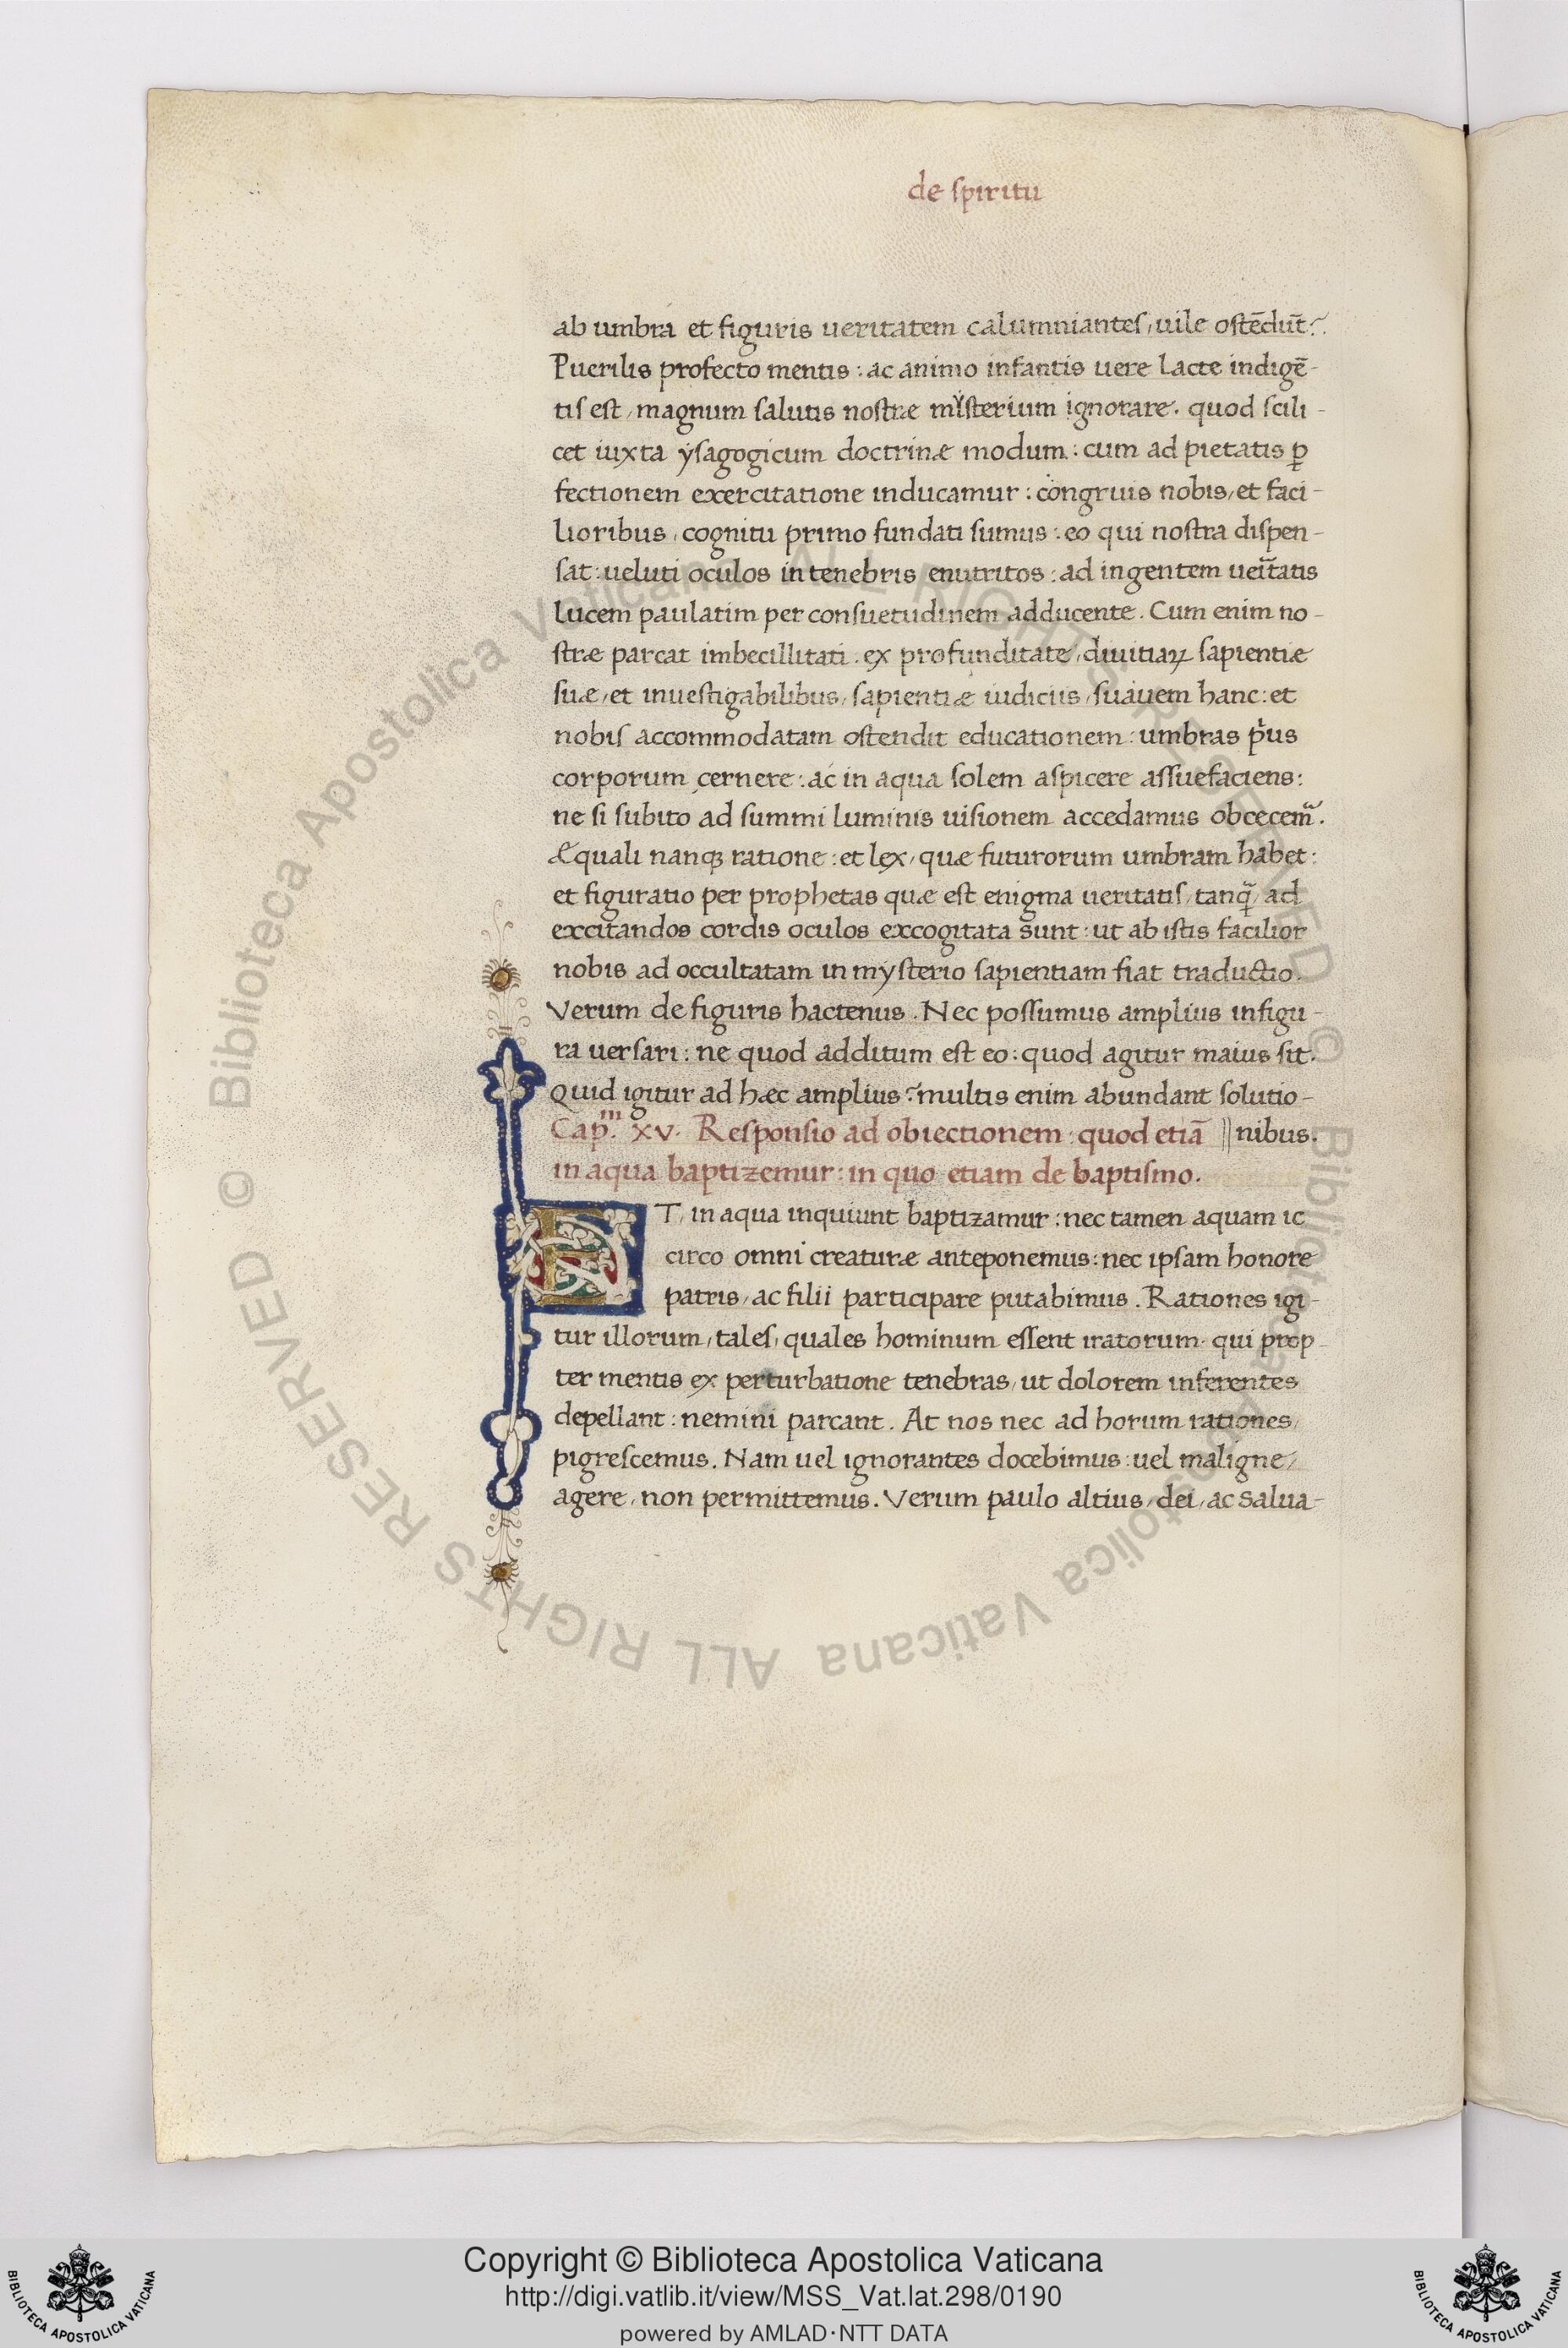 de spiritu
ab umbra et figuris ueritatem calumniantes, uile ostēdūt?
Puerilis profecto mentis: ac animo infantis uere lacte indigē-
tis est, magnum salutis nostræ mysterium ignorare. quod scili-
cet iuxta ysagogicum doctrinæ modum: cum ad pietatis ꝑ
fectionem exercitatione inducamur: congruis nobis, et faci-
lioribus, cognitu primo fundati sumus: eo qui nostra dispen-
sat: ueluti oculos in tenebris enutritos: ad ingentem ueri̅tatis
lucem paulatim per consuetudinem adducente. Cum enim no-
stræ parcat imbecillitati. ex profunditate, diuitiaꝝ sapientiæ
suæ, et inuestigabilibus, sapientiæ iudiciis, suauem hanc: et
nobis accommodatam ostendit educationem: umbras pʼus
corporum cernere: ac in aqua solem aspicere assuefaciens:
ne si subito ad summi luminis uisionem accedamus obcecem̃.
Æquali nanqꝫ ratione: et lex, quæ futurorum umbram habet:
et figuratio per prophetas quæ est enigma ueritatis, tanq̃, ad
excitandos cordis oculos excogitata sunt: ut ab istis facilior
nobis ad occultatam in mysterio sapientiam fiat traductio.
Verum de figuris hactenus. Nec possumus amplius in figu-
ra uersari: ne quod additum est eo: quod agitur maius sit.
Quid igitur ad hæc amplius? multis enim abundant solutio-
Capᵐ. XV. Responsio ad obiectionem: quod etiā || nibus.
in aqua baptizemur: in quo etiam de baptismo.
ET, in aqua inquiunt baptizamur: nec tamen aquam ic
circo omni creaturæ anteponemus: nec ipsam honore
patris, ac filii participare putabimus. Rationes igi-
tur illorum, tales, quales hominum essent iratorum. qui prop-
ter mentis ex perturbatione tenebras, ut dolorem inferentes
depellant: nemini parcant. At nos nec ad horum rationes,
pigrescemus. Nam uel ignorantes docebimus: uel maligne,
agere, non permittemus. Verum paulo altius, dei, ac salua-
© Biblioteca Apostolica Vaticana ALL RIGHTS RESERVED
© Biblioteca Apostolica Vaticana ALL RIGHTS RESERVED
BIBLIOTECA APOSTOLICA VATICANA
Copyright © Biblioteca Apostolica Vaticana
http://digi.vatlib.it/view/MSS_Vat.lat.298/0190
powered by AMLAD·NTT DATA
BIBLIOTECA APOSTOLICA VATICANA